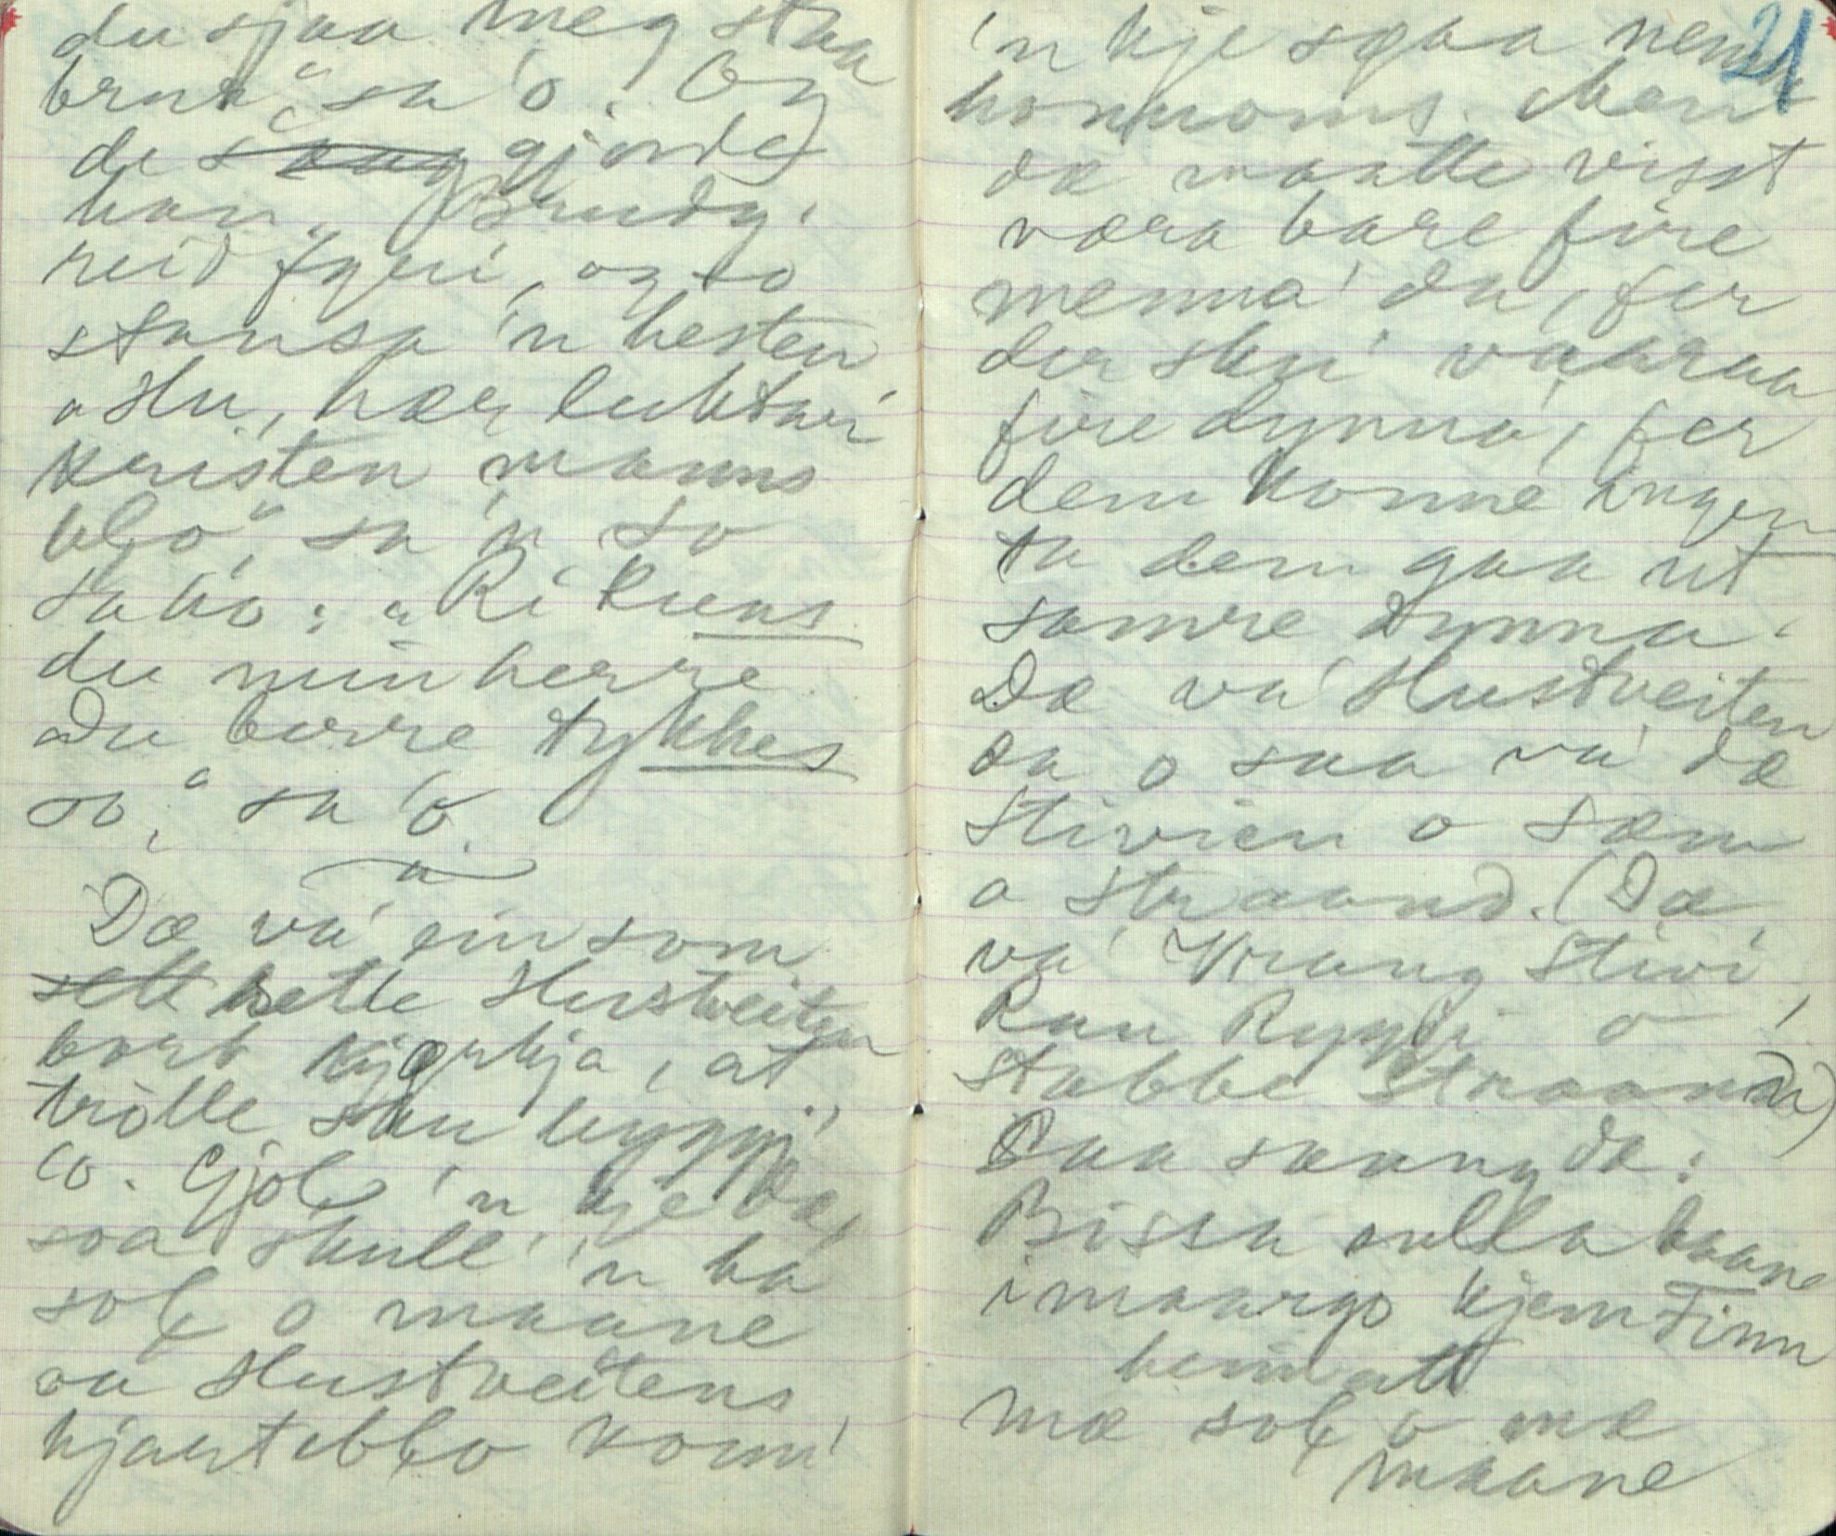 du sjaa meg staa
brur", sa 'o. Og
de saang gjorde
han. Brudg.
reid fyri, og so
stansa 'n hesten
"Hu, hær luktar
kristen manns
blo", sa 'n so
sa ho: "Ri kuns
du min herre
Du berre tykkes
so," sa 'o.
Dæ va' ein som
sell hette Hustveiten
bort kjørkja, at
trolle sku byggj'
co. Gjol 'n kje dæ,
soa skull' 'n ha
sol o maane
ou Hustveitens
hjarteblo komm'
21
'n kje sgaa nemne
honnoms. Men
dæ maatte visst
væra bare fire
menna' da, fer
der sku' vaaraa
fire dynna, fer
dem konne ingen
ta dem gaa ut
samre dynna.
Dæ va' Hustveiten
da o saa va' dæ
Stivien o Sæm
o Straand. (Dæ
va' Vrang Stivi,
Rau Ryggi o
Stabbe Straand)
Saa saang dæ:
Bissa vulla baane
i maargo kjem Finn
heimatt
mæ sol o mæ
maane